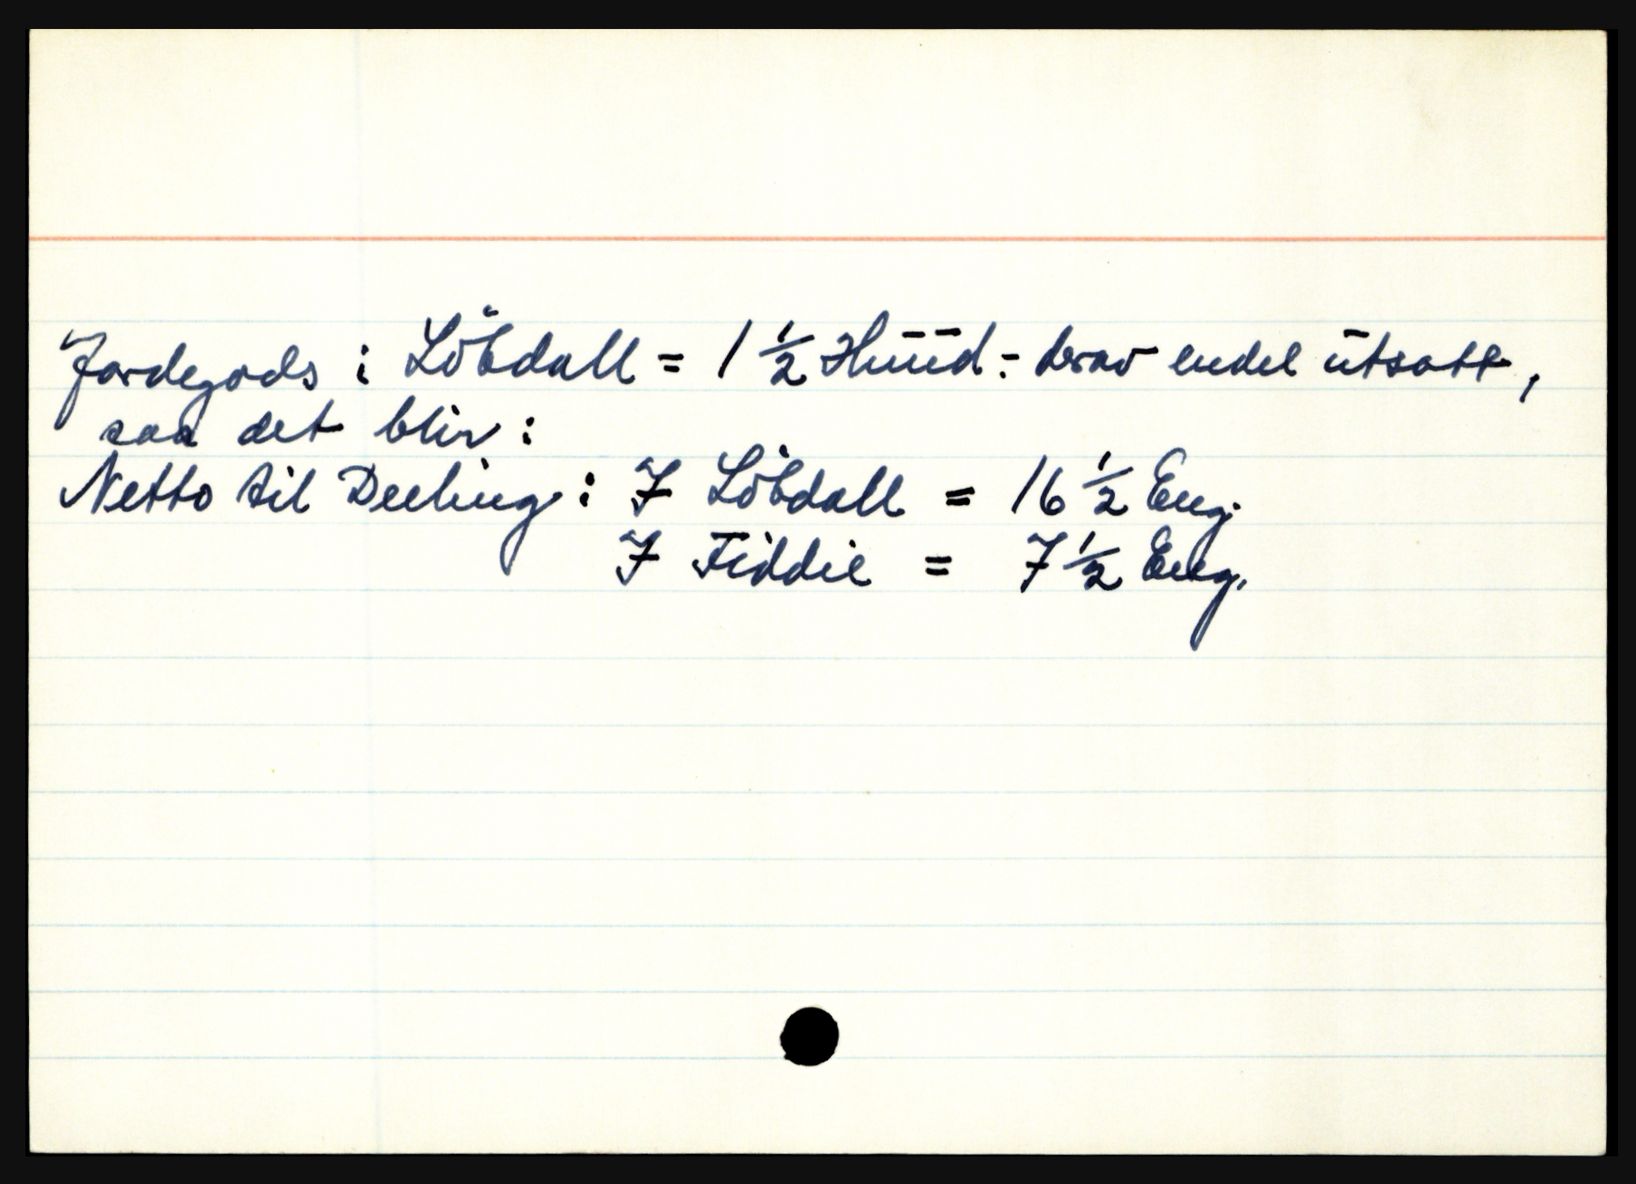 Jordegods i Löbdall = 1 ½ Huud:- derav endel utsatt,
saa det blir:
Netto til Deeling: I Löbdall = 16 ½ Eng.
I Fiddie = 7 ½ Eng.